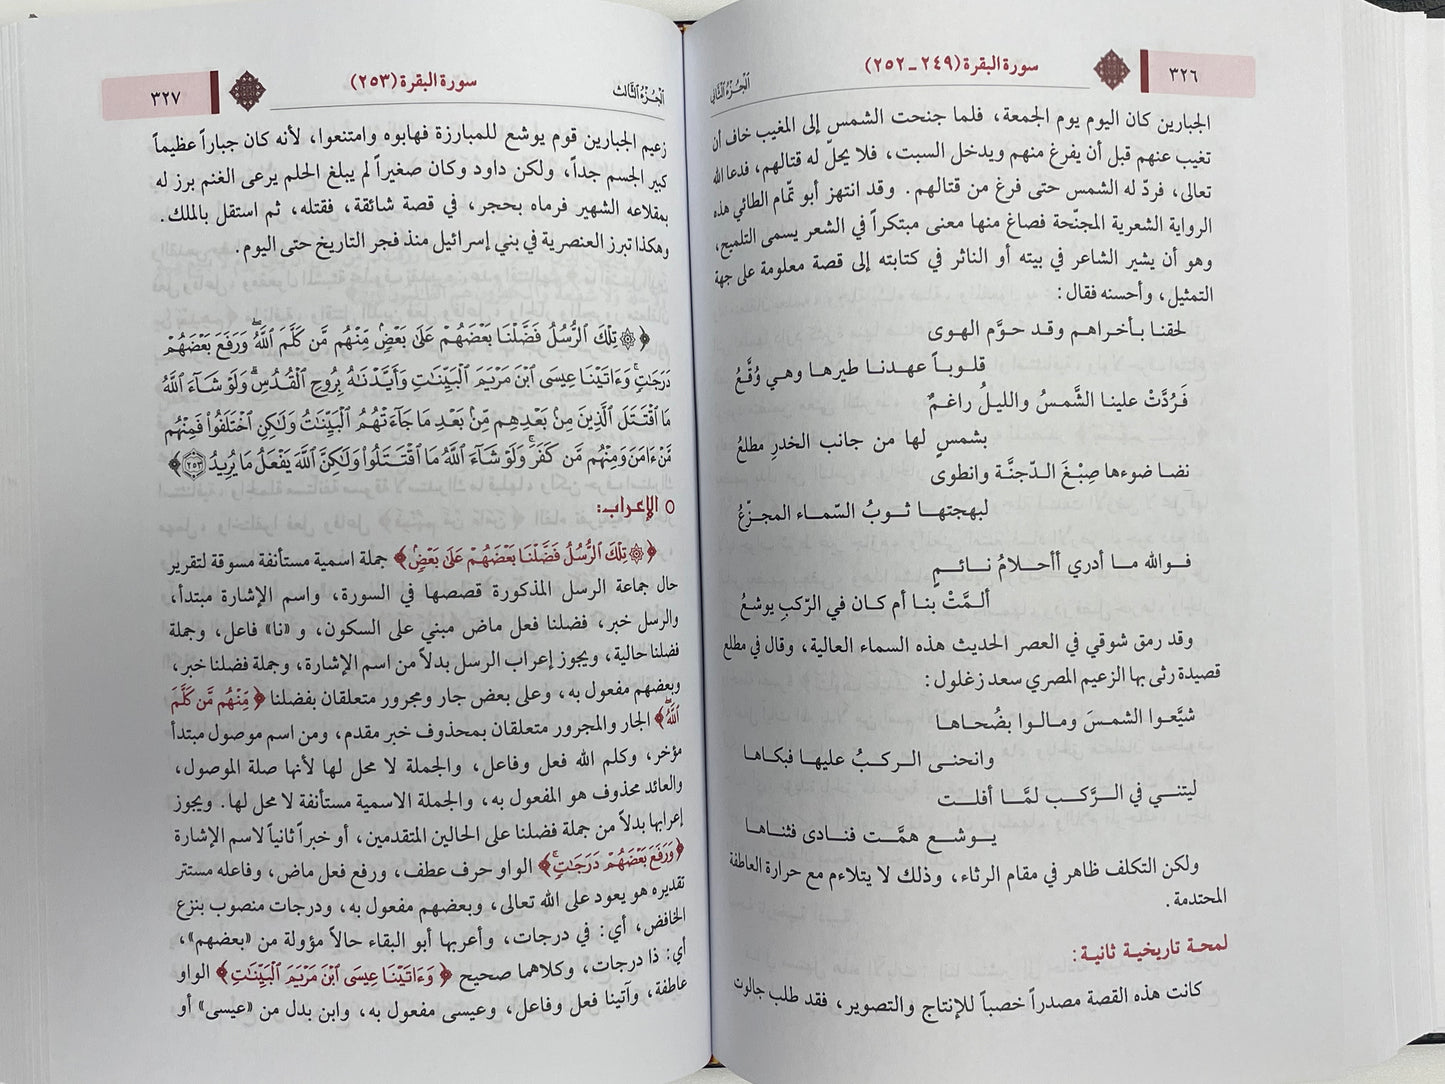 ٣٢٦
سورة البقرة (٢٤٩ - ٢٥٢)
الجزء الثاني
الجبارين كان اليوم يوم الجمعة، فلما جنحت الشمس إلى المغيب خاف أن
تغيب عنهم قبل أن يفرغ منهم ويدخل السبت، فلا يحلّ له قتالهم، فدعا الله
تعالى، فردّ له الشمس حتى فرغ من قتالهم. وقد انتهز أبو تمّام الطائي هذه
الرواية الشعرية المجنّحة فصاغ منها معنى مبتكراً في الشعر يسمى التلميح،
وهو أن يشير الشاعر في بيته أو الناثر في كتابته إلى قصة معلومة على جهة
التمثيل، وأحسنه فقال:
لحقنا بأخراهم وقد حوَّم الهوى
قلوباً عهدنا طيرها وهي وُقَّعُ
فَرُدَّتْ علينا الشَّمسُ والليلُ راغمٌ
بشمسٍ لها من جانب الخدرِ مطلعُ
نضا ضوءها صِبْغَ الدّجنَّة وانطوى
لبهجتها ثوبُ السّماء المجزّعُ
فوالله ما أدري أأحلامُ نائمٍ
ألمَّتْ بنا أم كان في الرّكبِ يوشعُ
وقد رمق شوقي في العصر الحديث هذه السماء العالية، وقال في مطلع
قصيدة رثى بها الزعيم المصري سعد زغلول:
شيَّعوا الشمسَ ومالوا بضُحاها
وانحنى الركبُ عليها فبكاها
ليتني في الرَّكب لمَّا أفلت
يوشع همَّت فنادى فثناها
ولكن التكلف ظاهر في مقام الرثاء، وذلك لا يتلاءم مع حرارة العاطفة
المحتدمة.
لمحة تاريخية ثانية:
كانت هذه القصة مصدراً خصباً للإنتاج والتصوير، فقد طلب جالوت
الجزء الثالث
سورة البقرة (٢٥٣)
٣٢٧
زعيم الجبارين قوم يوشع للمبارزة فهابوه وامتنعوا، لأنه كان جباراً عظيماً
كبير الجسم جداً، ولكن داود وكان صغيراً لم يبلغ الحلم يرعى الغنم برز له
بمقلاعه الشهير فرماه بحجر، في قصة شائقة، فقتله، ثم استقل بالملك.
وهكذا تبرز العنصرية في بني إسرائيل منذ فجر التاريخ حتى اليوم.
﴿۞ تِلْكَ ٱلرُّسُلُ فَضَّلْنَا بَعْضَهُمْ عَلَىٰ بَعْضٍۘ مِّنْهُم مَّن كَلَّمَ ٱللَّهُۖ وَرَفَعَ بَعْضَهُمْ
دَرَجَٰتٍۚ وَءَاتَيْنَا عِيسَى ٱبْنَ مَرْيَمَ ٱلْبَيِّنَٰتِ وَأَيَّدْنَٰهُ بِرُوحِ ٱلْقُدُسِۗ وَلَوْ شَآءَ ٱللَّهُ
مَا ٱقْتَتَلَ ٱلَّذِينَ مِنۢ بَعْدِهِم مِّنۢ بَعْدِ مَا جَآءَتْهُمُ ٱلْبَيِّنَٰتُ وَلَٰكِنِ ٱخْتَلَفُوا۟ فَمِنْهُم
مَّنْ ءَامَنَ وَمِنْهُم مَّن كَفَرَۚ وَلَوْ شَآءَ ٱللَّهُ مَا ٱقْتَتَلُوا۟ وَلَٰكِنَّ ٱللَّهَ يَفْعَلُ مَا يُرِيدُ ٢٥٣﴾
○ الإعراب:
﴿۞ تِلْكَ ٱلرُّسُلُ فَضَّلْنَا بَعْضَهُمْ عَلَىٰ بَعْضٍۘ﴾ جملة اسمية مستأنفة مسوقة لتقرير
حال جماعة الرسل المذكورة قصصها في السورة، واسم الإشارة مبتدأ،
والرسل خبر، فضلنا فعل ماض مبني على السكون، و «نا» فاعل، وجملة
فضلنا حالية، ويجوز إعراب الرسل بدلاً من اسم الإشارة، وجملة فضلنا خبر،
وبعضهم مفعول به، وعلى بعض جار ومجرور متعلقان بفضلنا ﴿مِّنْهُم مَّن كَلَّمَ
ٱللَّهُۖ﴾ الجار والمجرور متعلقان بمحذوف خبر مقدم، ومن اسم موصول مبتدأ
مؤخر، وكلم الله فعل وفاعل، والجملة لا محل لها لأنها صلة الموصول،
والعائد محذوف هو المفعول به، والجملة الاسمية مستأنفة لا محل لها. ويجوز
إعرابها بدلاً من جملة فضلنا على الحالين المتقدمين، أو خبراً ثانياً لاسم الإشارة
﴿وَرَفَعَ بَعْضَهُمْ دَرَجَٰتٍۚ﴾ الواو حرف عطف، ورفع فعل ماض، وفاعله مستتر
تقديره هو يعود على الله تعالى، وبعضهم مفعول به، ودرجات منصوب بنزع
الخافض، أي: في درجات، وأعربها أبو البقاء حالاً مؤولة من «بعضهم»،
أي: ذا درجات، وكلاهما صحيح ﴿وَءَاتَيْنَا عِيسَى ٱبْنَ مَرْيَمَ ٱلْبَيِّنَٰتِ﴾ الواو
عاطفة، وآتينا فعل وفاعل، وعيسى مفعول به، وابن بدل من «عيسى» أو